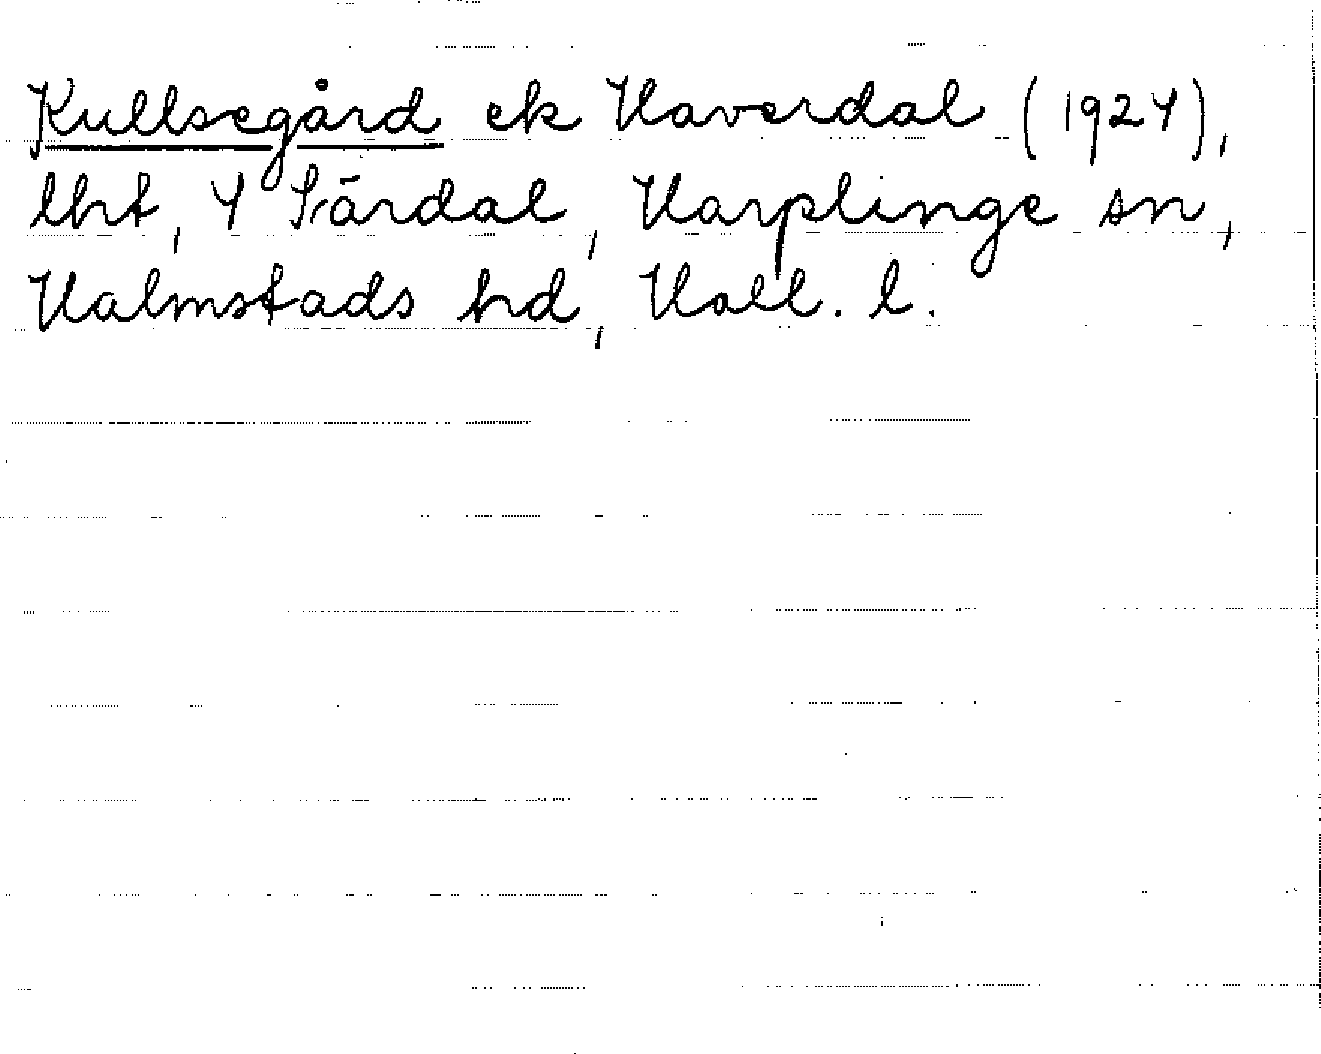 Kullsegård ek Haverdal (1924),
lht, 4 Särdal, Harplinge sn,
Halmstads hd, Hall. l.